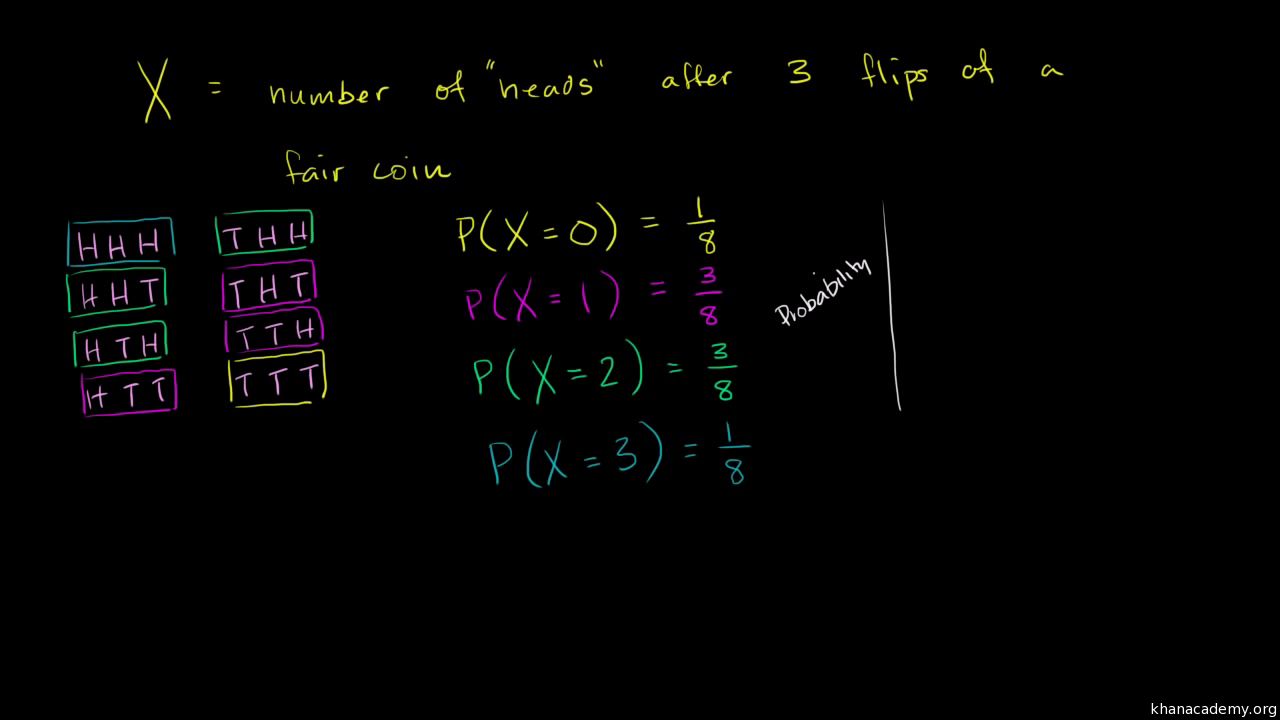 X = number of "heads" after 3 flips of a
fair coin
HHH
HHT
HTH
HTT
THH
THT
TTH
TTT
P(X=0) = 1/8
P(X=1) = 3/8
P(X=2) = 3/8
P(X=3) = 1/8
Probability
khanacademy.org